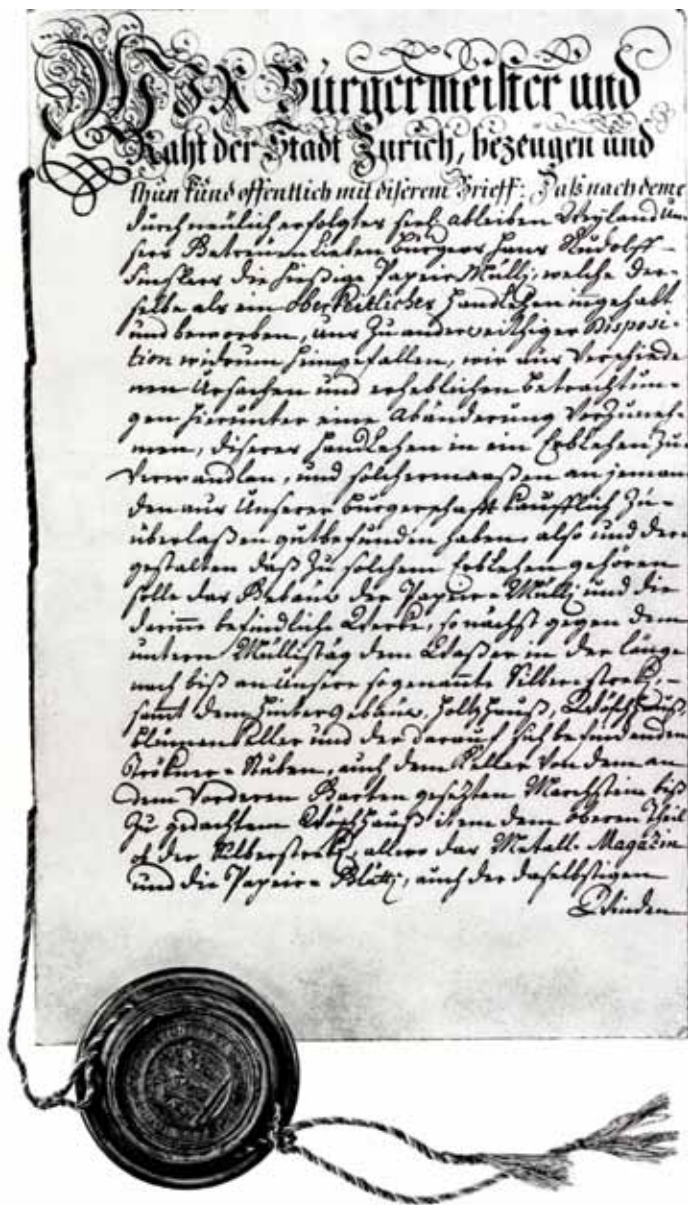 WIR Bürgermeister und
Raht der Stadt Zürich, bezeugen und
thun kund offentlich mit diserem Brieff: Daß nach deme
durch neülich erfolgtes seel. ableiben Weyland Un-
sers Getreüen Lieben Burgers Hans Rudolff
die hießige Papeir-Mülli, welche der-
selbe als ein oberkeitliches Handlehen ingehabt
und beworben, uns zu anderweithiger Disposi-
tion widrum heimgefallen, wir aus Verschiede-
nen Ursachen und erheblichen betrachtun-
gen hierunter eine Abänderung Vorzuneh-
men, diseres Handlehen in ein Erblehen zu
Verwandlen, und solchermaaßen an jeman-
den aus Unserer Burgerschafft kaüfflich zu-
überlaßen gutbefunden haben, also und der-
gestalten daß zu solchem Erblehen gehören
solle das Gebäue der Papeir-Mülli und die
darinne befindliche Werke, so nächst gegen dem
untern Müllistäg dem Waßer in der länge
nach biß an Unsere sogenannte Silberstreke,
samt dem Hintergebäue, Holtzhauß, Wöschhauß,
blummenkeller und der darauf sich befindenden
Trökner-Stuben, auch dem Keller Von dem an
dem Vorderen Garten gesezten Marchstein biß
zu gedachtem Wöschhauß item dem oberen Theil
of der Silberstreke, allwo das Metall-Magazin
und die Papeir-Glätti, auch der daselbstigen
Winden